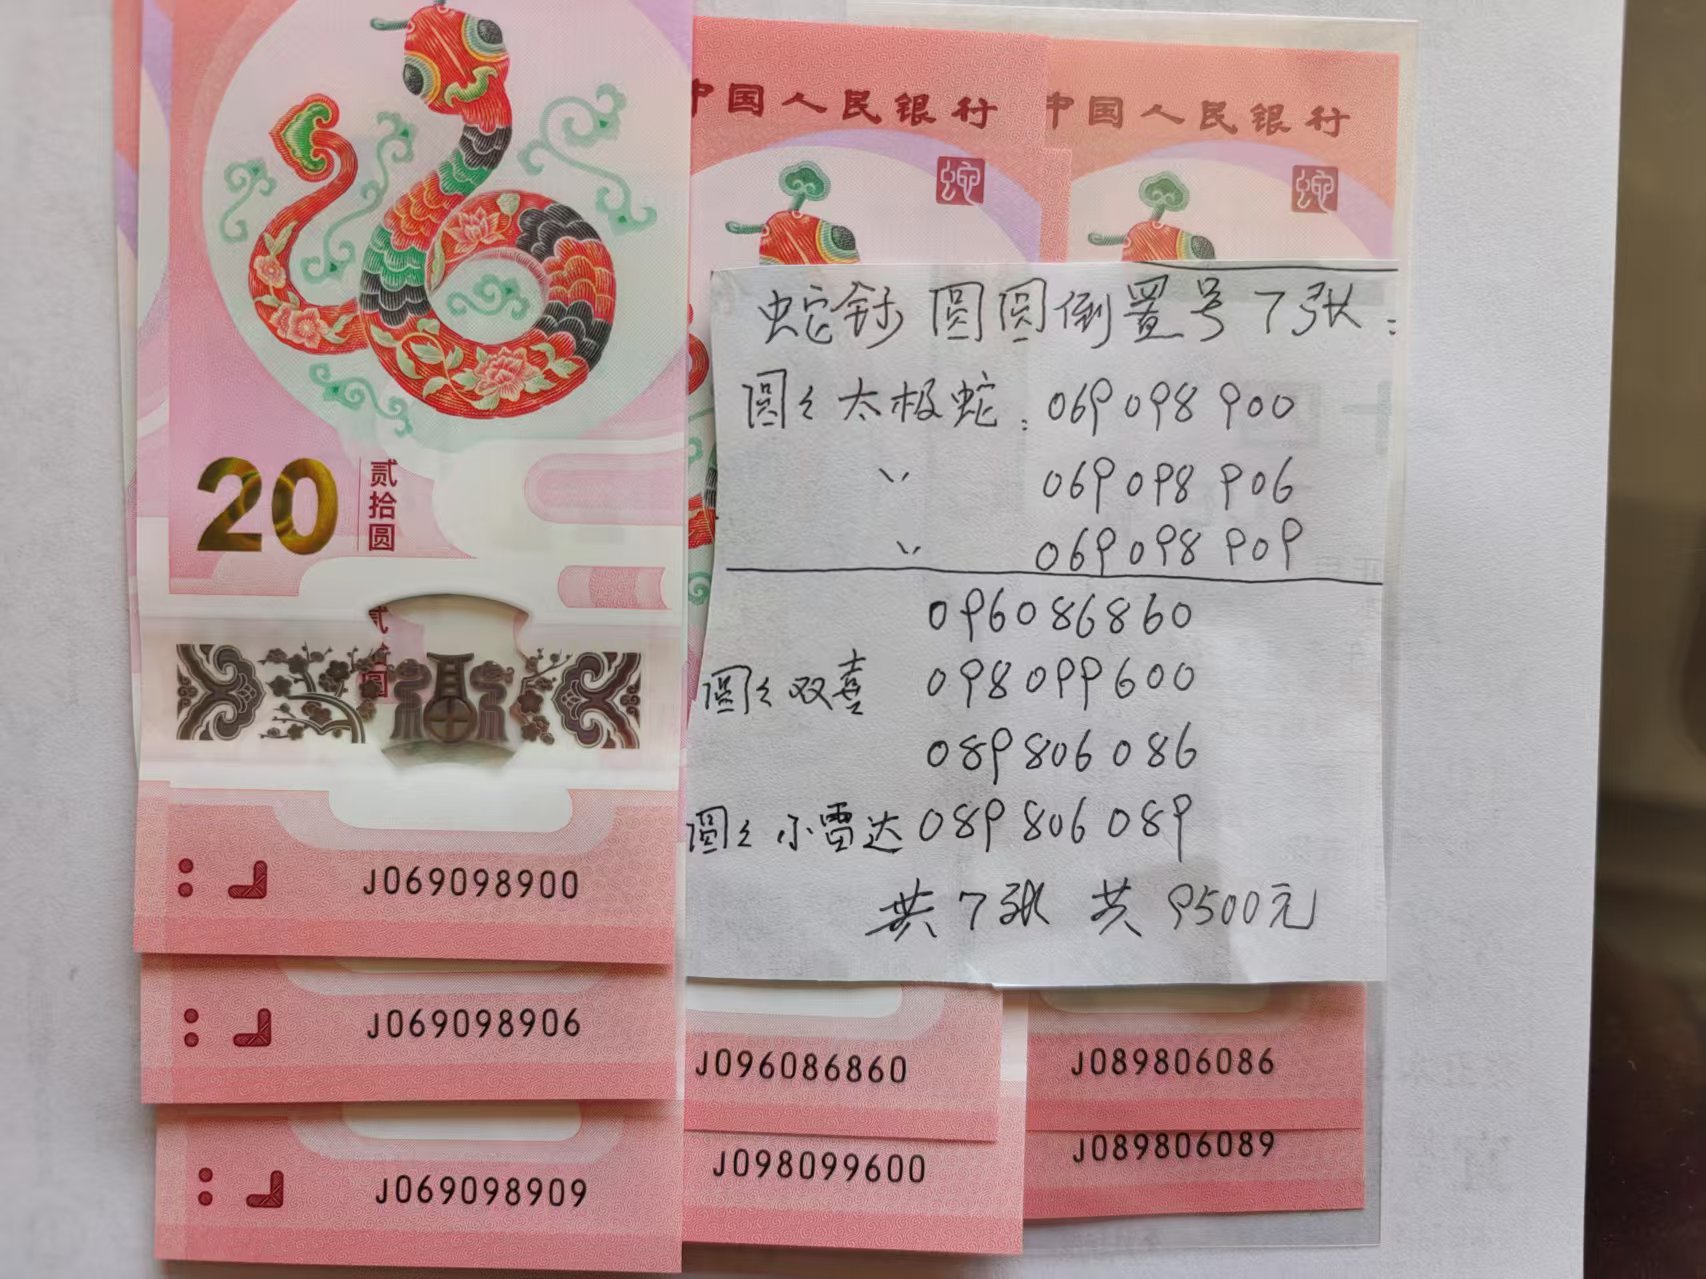 20
贰拾圆
J069098900
J069098906
J069098909
中国人民银行
中国人民银行
蛇钞圆圆倒置号7张：
圆々太极蛇：069098900
〃 069098906
〃 069098909
096086860
圆々双喜 098099600
089806086
圆々小雷达 089806089
共7张 共9500元
J096086860
J098099600
J089806086
J089806089